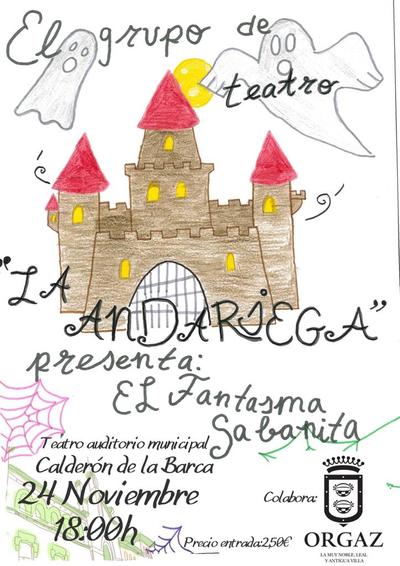 El grupo de
teatro
"LA
ANDARIEGA"
presenta:
EL Fantasma
Sabanita
Teatro auditorio municipal
Calderón de la Barca
24 Noviembre
18:00h
Precio entrada:2,50€
Colabora:
ORGAZ
LA MUY NOBLE, LEAL
Y ANTIGUA VILLA